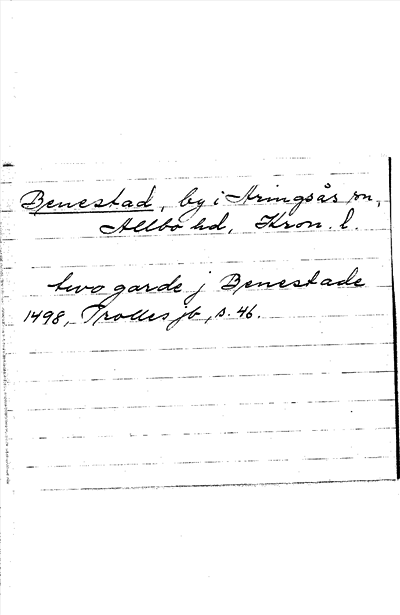 Benestad, by i Aringsås sn,
Allbo hd, Kron. l.
two garde j Benestade
1498, Trolles jb, s. 46.